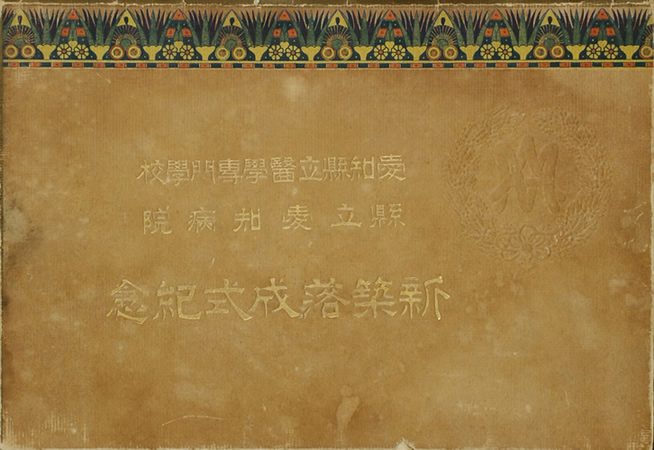 愛知縣立醫學專門學校
縣立愛知病院
新築落成式紀念